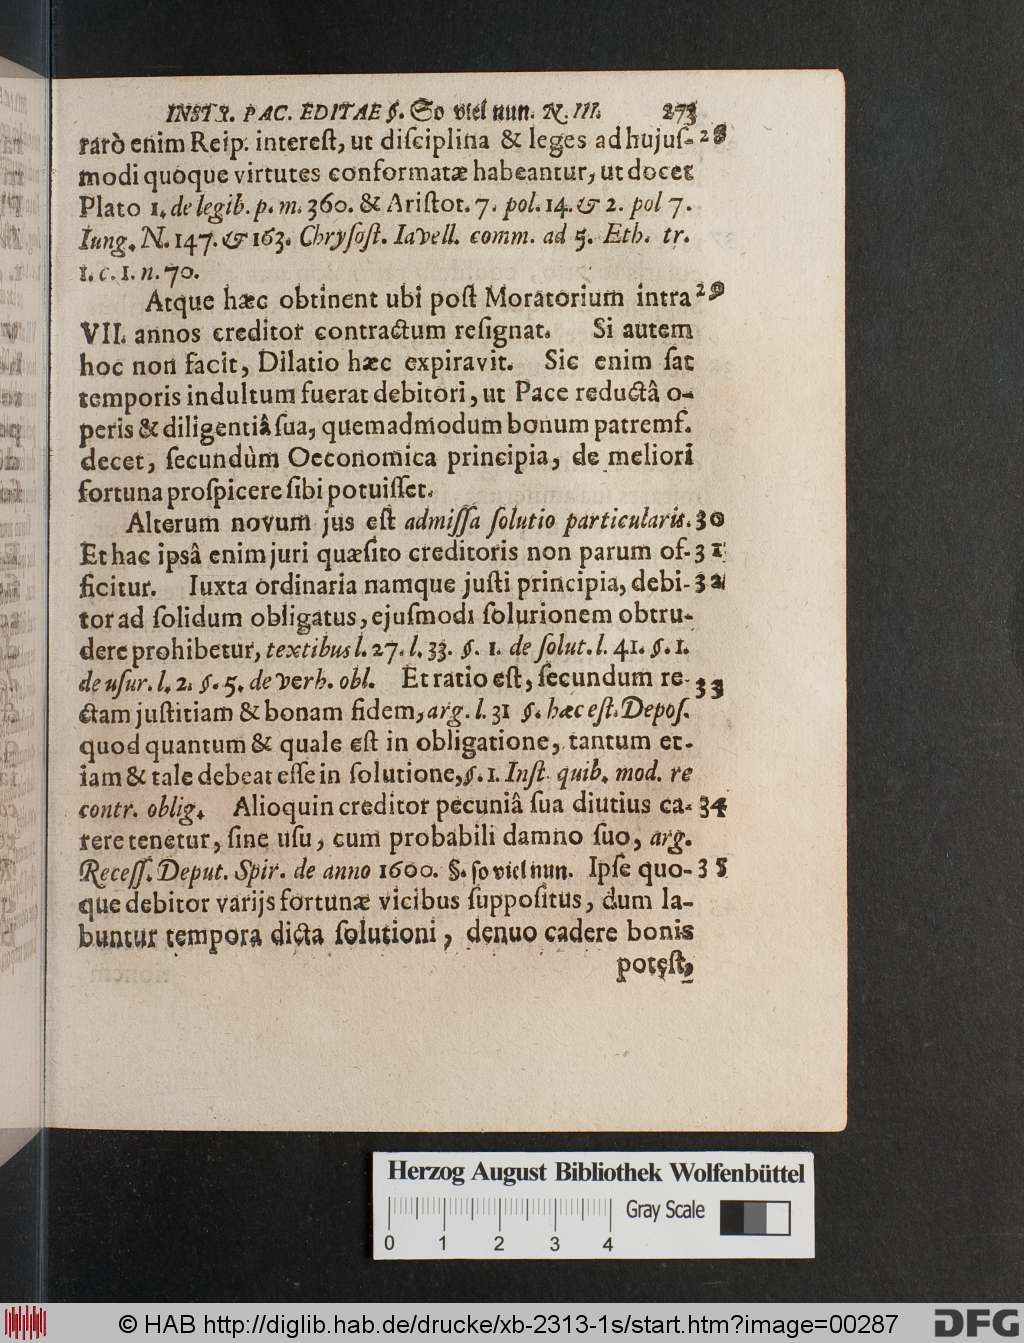 INSTR. PAC. EDITAE §. So viel nun. N. III. 273
rarò enim Reip. interest, ut disciplina & leges ad hujus- 28
modi quoque virtutes conformatæ habeantur, ut docet
Plato 1. de legib. p. m. 360. & Aristot. 7. pol. 14. & 2. pol 7.
Iung. N. 147. & 163. Chrysost. Iavell. comm. ad 5. Eth. tr.
1. c. 1. n. 70.
Atque hæc obtinent ubi post Moratorium intra 29
VII. annos creditor contractum resignat. Si autem
hoc non facit, Dilatio hæc expiravit. Sic enim sat
temporis indultum fuerat debitori, ut Pace reductâ o-
peris & diligentiâ sua, quemadmodum bonum patremf.
decet, secundùm Oeconomica principia, de meliori
fortuna prospicere sibi potuisset.
Alterum novum jus est admissa solutio particularis. 30
Et hac ipsâ enim juri quæsito creditoris non parum of- 31
ficitur. Iuxta ordinaria namque justi principia, debi- 32
tor ad solidum obligatus, ejusmodi solutionem obtru-
dere prohibetur, textibus l. 27. l. 33. §. 1. de solut. l. 41. §. 1.
de usur. l. 2. §. 5. de verb. obl. Et ratio est, secundum re- 33
ctam justitiam & bonam fidem, arg. l. 31 §. hæc est. Depos.
quod quantum & quale est in obligatione, tantum et-
iam & tale debeat esse in solutione, §. 1. Inst. quib. mod. re
contr. oblig. Alioquin creditor pecuniâ sua diutius ca- 34
rere tenetur, sine usu, cum probabili damno suo, arg.
Recess. Deput. Spir. de anno 1600. §. so viel nun. Ipse quo- 35
que debitor varijs fortunæ vicibus suppositus, dum la-
buntur tempora dicta solutioni, denuo cadere bonis
potest,
Herzog August Bibliothek Wolfenbüttel
Gray Scale
0 1 2 3 4
© HAB http://diglib.hab.de/drucke/xb-2313-1s/start.htm?image=00287
DFG